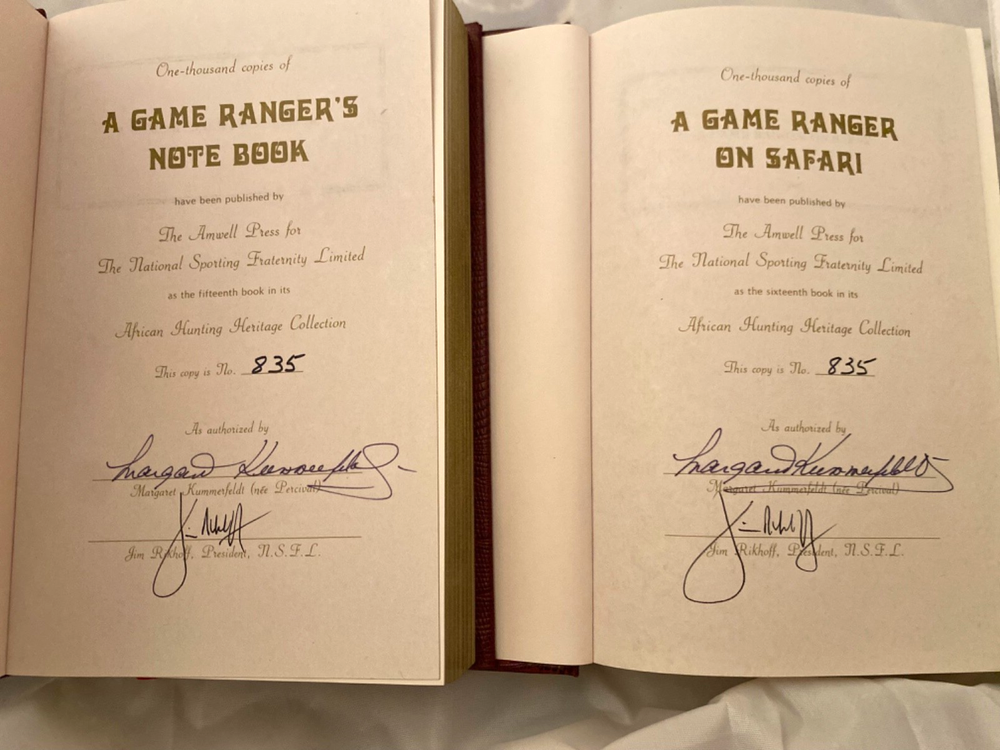 One-thousand copies of
A GAME RANGER'S
NOTE BOOK
have been published by
The Amwell Press for
The National Sporting Fraternity Limited
as the fifteenth book in its
African Hunting Heritage Collection
This copy is No. 835
As authorized by
Margaret Kummerfeldt
Margaret Kummerfeldt (née Percival)
Jim Rikhoff
Jim Rikhoff, President, N.S.F.L.
One-thousand copies of
A GAME RANGER
ON SAFARI
have been published by
The Amwell Press for
The National Sporting Fraternity Limited
as the sixteenth book in its
African Hunting Heritage Collection
This copy is No. 835
As authorized by
Margaret Kummerfeldt
Margaret Kummerfeldt (née Percival)
Jim Rikhoff
Jim Rikhoff, President, N.S.F.L.